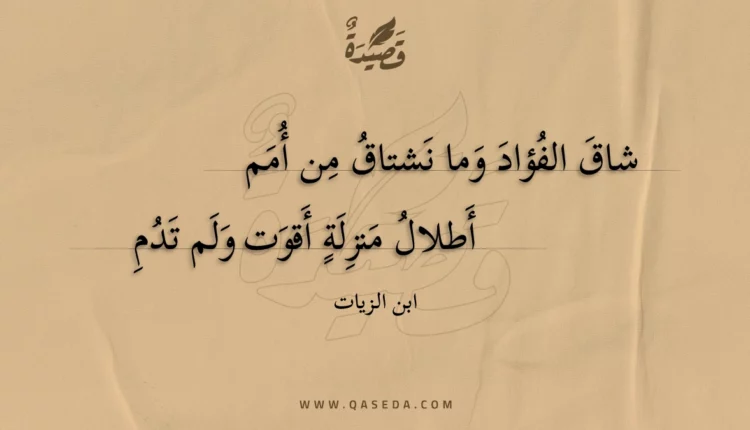 قَصِيْدَةٌ
شاقَ الفُؤادَ وَما نَشتاقُ مِن أُمَم
أَطلالُ مَنزِلَةٍ أَقوَت وَلَم تَدُمِ
ابن الزيات
WWW.QASEDA.COM